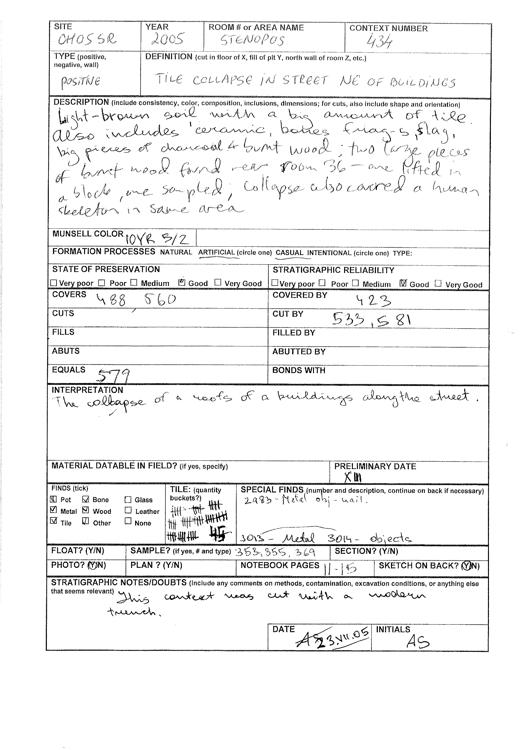 SITE YEAR ROOM # or AREA NAME CONTEXT NUMBER
CHOSSR 2005 STENOPOS 434
TYPE (positive, negative, wall) DEFINITION (cut in floor of X, fill of pit Y, north wall of room Z, etc.)
POSITIVE TILE COLLAPSE IN STREET NE OF BUILDINGS
DESCRIPTION (include consistency, color, composition, inclusions, dimensions; for cuts, also include shape and orientation)
Light-brown soil with a big amount of tile.
Also includes ceramic, bones frag-s, slag,
big pieces of charcoal & burnt wood; two large pieces
of burnt wood found near room 36 - one lifted in
a block, one sampled; Collapse also covered a human
skeleton in same area
MUNSELL COLOR 10YR 5/2
FORMATION PROCESSES NATURAL ARTIFICIAL (circle one) CASUAL INTENTIONAL (circle one) TYPE:
STATE OF PRESERVATION STRATIGRAPHIC RELIABILITY
Very poor Poor Medium Good Very Good Very poor Poor Medium Good Very Good
COVERS 488 560 COVERED BY 423
CUTS CUT BY 533, 581
FILLS FILLED BY
ABUTS ABUTTED BY
EQUALS 579 BONDS WITH
INTERPRETATION
The collapse of a roofs of a buildings along the street.
MATERIAL DATABLE IN FIELD? (if yes, specify) PRELIMINARY DATE
XIII
FINDS (tick) TILE: (quantity buckets?) SPECIAL FINDS (number and description, continue on back if necessary)
Pot Bone Glass 2983 - Metal obj - nail.
Metal Wood Leather
Tile Other None 45 3013 - Metal 3014 - objects
FLOAT? (Y/N) SAMPLE? (if yes, # and type) 353, 355, 369 SECTION? (Y/N)
PHOTO? (Y/N) PLAN? (Y/N) NOTEBOOK PAGES 11-15 SKETCH ON BACK? (Y/N)
STRATIGRAPHIC NOTES/DOUBTS (Include any comments on methods, contamination, excavation conditions, or anything else
that seems relevant) This context was cut with a modern
trench.
DATE 23.VII.05 INITIALS AS